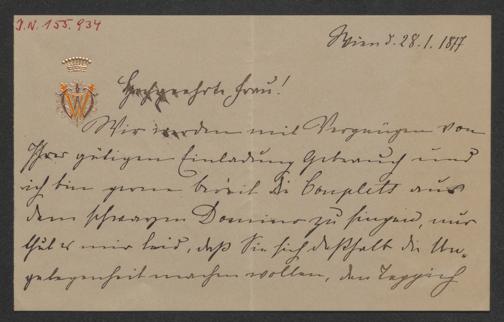 J.N. 155.934
Wien d. 28.1.
Hochgeehrte Frau!
Wir werden mit Vergnügen von
Ihrer gütigen Einladung Gebrauch und
ich bin gerne bereit die Couplets aus
dem schwarzen Domino zu singen, nur
thut es mir leid, daß Sie sich deßhalb die Un-
gelegenheit machen wollen, den Teppich